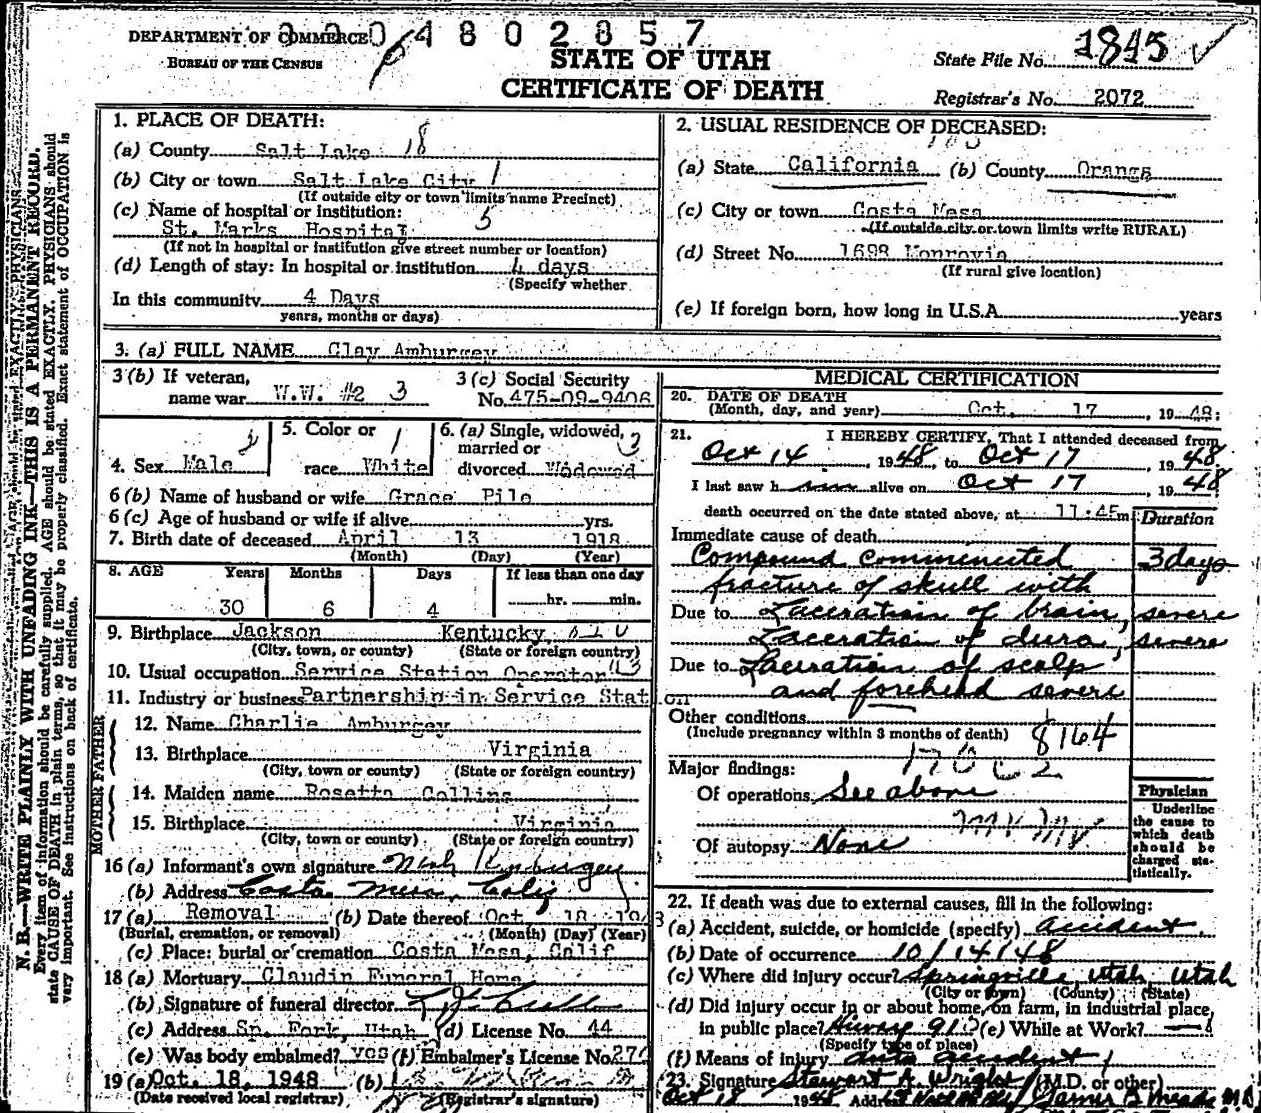 0 4 8 0 2 8 5 7
DEPARTMENT OF COMMERCE
BUREAU OF THE CENSUS
STATE OF UTAH
CERTIFICATE OF DEATH
State File No. 1845 ✓
Registrar's No. 2072
N. B.—WRITE PLAINLY WITH UNFADING INK—THIS IS A PERMANENT RECORD.
Every item of information should be carefully supplied. AGE should be stated EXACTLY. PHYSICIANS should
state CAUSE OF DEATH in plain terms, so that it may be properly classified. Exact statement of OCCUPATION is
very important. See instructions on back of certificate.
1. PLACE OF DEATH:
(a) County Salt Lake 18
(b) City or town Salt Lake City 1
(If outside city or town limits name Precinct)
(c) Name of hospital or institution: 5
St. Marks Hospital
(If not in hospital or institution give street number or location)
(d) Length of stay: In hospital or institution 4 days
(Specify whether
In this community 4 Days
years, months or days)
2. USUAL RESIDENCE OF DECEASED:
(a) State California (b) County Orange
(c) City or town Costa Mesa
(If outside city or town limits write RURAL)
(d) Street No. 1698 Monrovia
(If rural give location)
(e) If foreign born, how long in U.S.A. years
3. (a) FULL NAME Clay Amburgey
3 (b) If veteran,
name war W.W. #2 3
3 (c) Social Security
No. 475-09-9406
4. Sex Male
5. Color or
race White 1
6. (a) Single, widowed,
married or
divorced Widowed 3
6 (b) Name of husband or wife Grace Pile
6 (c) Age of husband or wife if alive yrs.
7. Birth date of deceased April 13 1918
(Month) (Day) (Year)
8. AGE Years Months Days If less than one day
30 6 4 hr. min.
9. Birthplace Jackson Kentucky
(City, town, or county) (State or foreign country)
10. Usual occupation Service Station Operator
11. Industry or business Partnership in Service Station
FATHER
12. Name Charlie Amburgey
13. Birthplace Virginia
(City, town or county) (State or foreign country)
MOTHER
14. Maiden name Rosetta Collins
15. Birthplace Virginia
(City, town or county) (State or foreign country)
16 (a) Informant's own signature Amburgey
(b) Address Costa Mesa, Calif
17 (a) Removal (b) Date thereof Oct. 18, 194
(Burial, cremation, or removal) (Month) (Day) (Year)
(c) Place: burial or cremation Costa Mesa, Calif
18 (a) Mortuary Claudin Funeral Home
(b) Signature of funeral director
(c) Address Sp. Fork, Utah (d) License No. 44
(e) Was body embalmed? yes (f) Embalmer's License No. 270
19 (a) Oct. 18, 1948 (b)
(Date received local registrar) (Registrar's signature)
MEDICAL CERTIFICATION
20. DATE OF DEATH
(Month, day, and year) Oct. 17, 1948
21. I HEREBY CERTIFY, That I attended deceased from
Oct 14, 1948, to Oct 17, 1948
I last saw him alive on Oct 17 1948
death occurred on the date stated above, at 11:45 m
Duration
Immediate cause of death
Compound comminuted 3 days
fracture of skull with
Due to Laceration of brain, severe
Laceration of dura, severe
Due to Laceration of scalp
and forehead severe
Other conditions
(Include pregnancy within 3 months of death) 8164
Major findings:
Of operations See above
Of autopsy None
Physician
Underline
the cause to
which death
should be
charged sta-
tistically.
22. If death was due to external causes, fill in the following:
(a) Accident, suicide, or homicide (specify) accident
(b) Date of occurrence 10/14/48
(c) Where did injury occur? Springville, Utah, Utah
(City or town) (County) (State)
(d) Did injury occur in or about home, on farm, in industrial place,
in public place? (e) While at Work?
(Specify type of place)
(f) Means of injury auto accident
23. Signature Stewart A. Wright (M.D. or other)
Oct 18 1948 Address